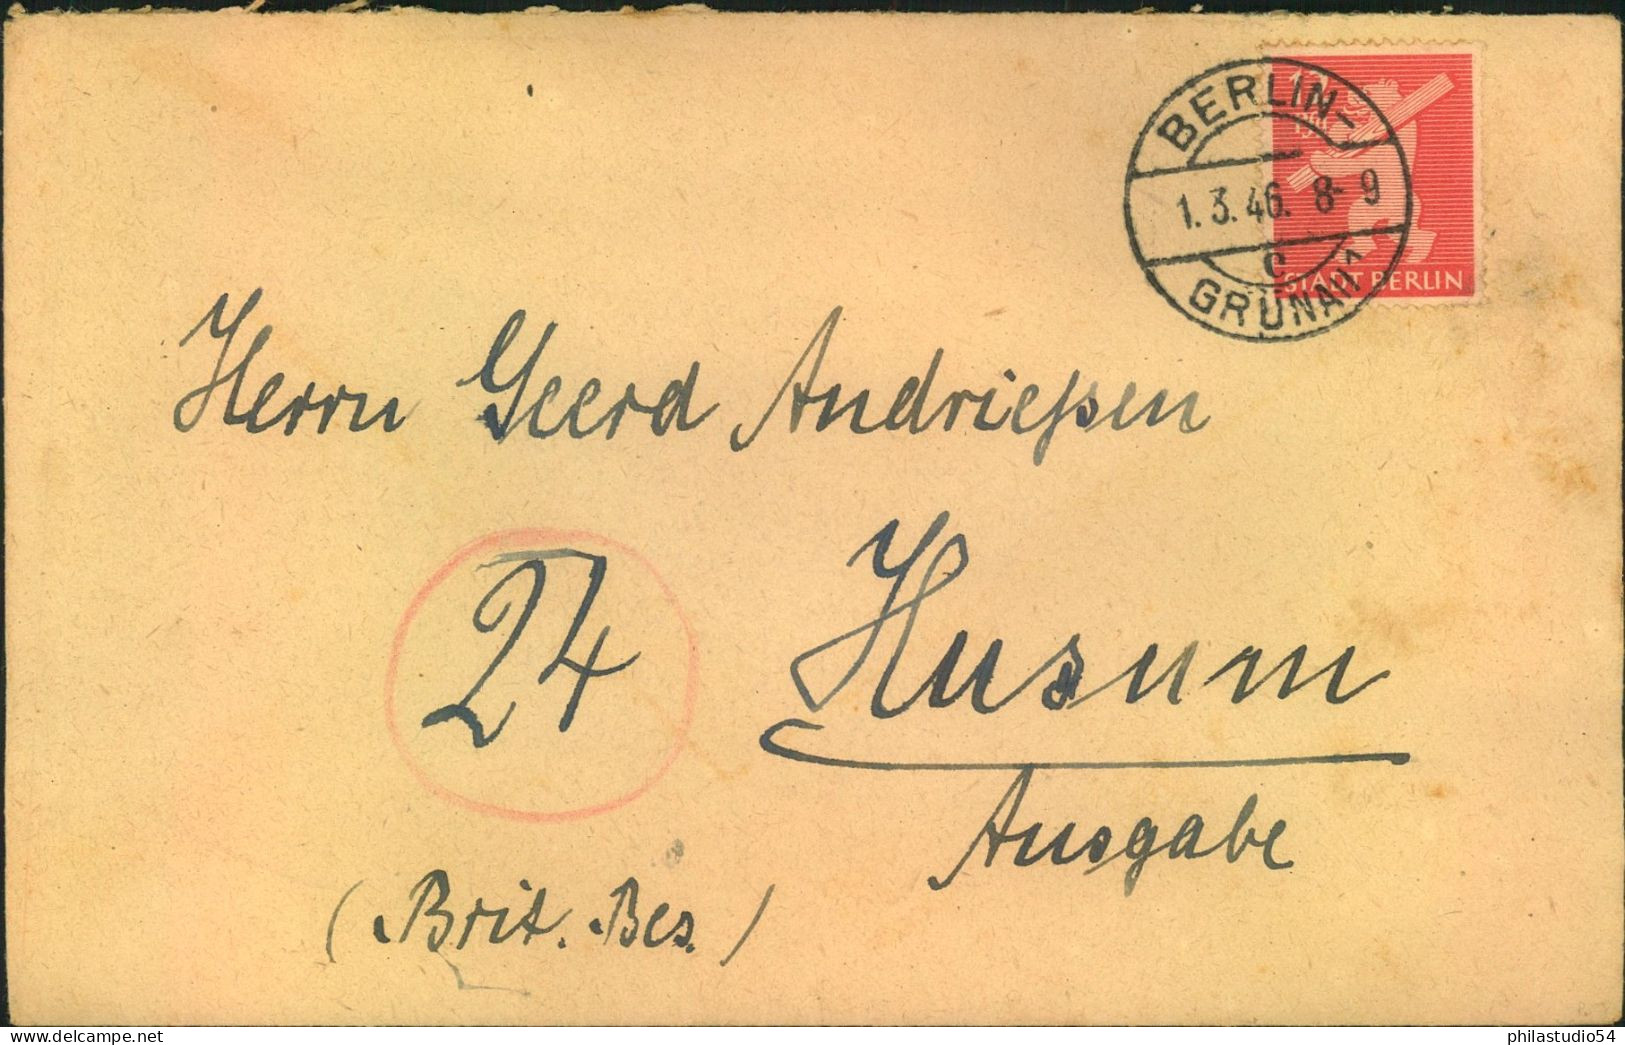 BERLIN-
1.3.46. 8-9
c
GRÜNAU
12
STADT BERLIN
Herrn Geerd Andrießen
24 Husum
Ausgabe
(Brit. Bes.)
www.delcampe.net
philastudio54